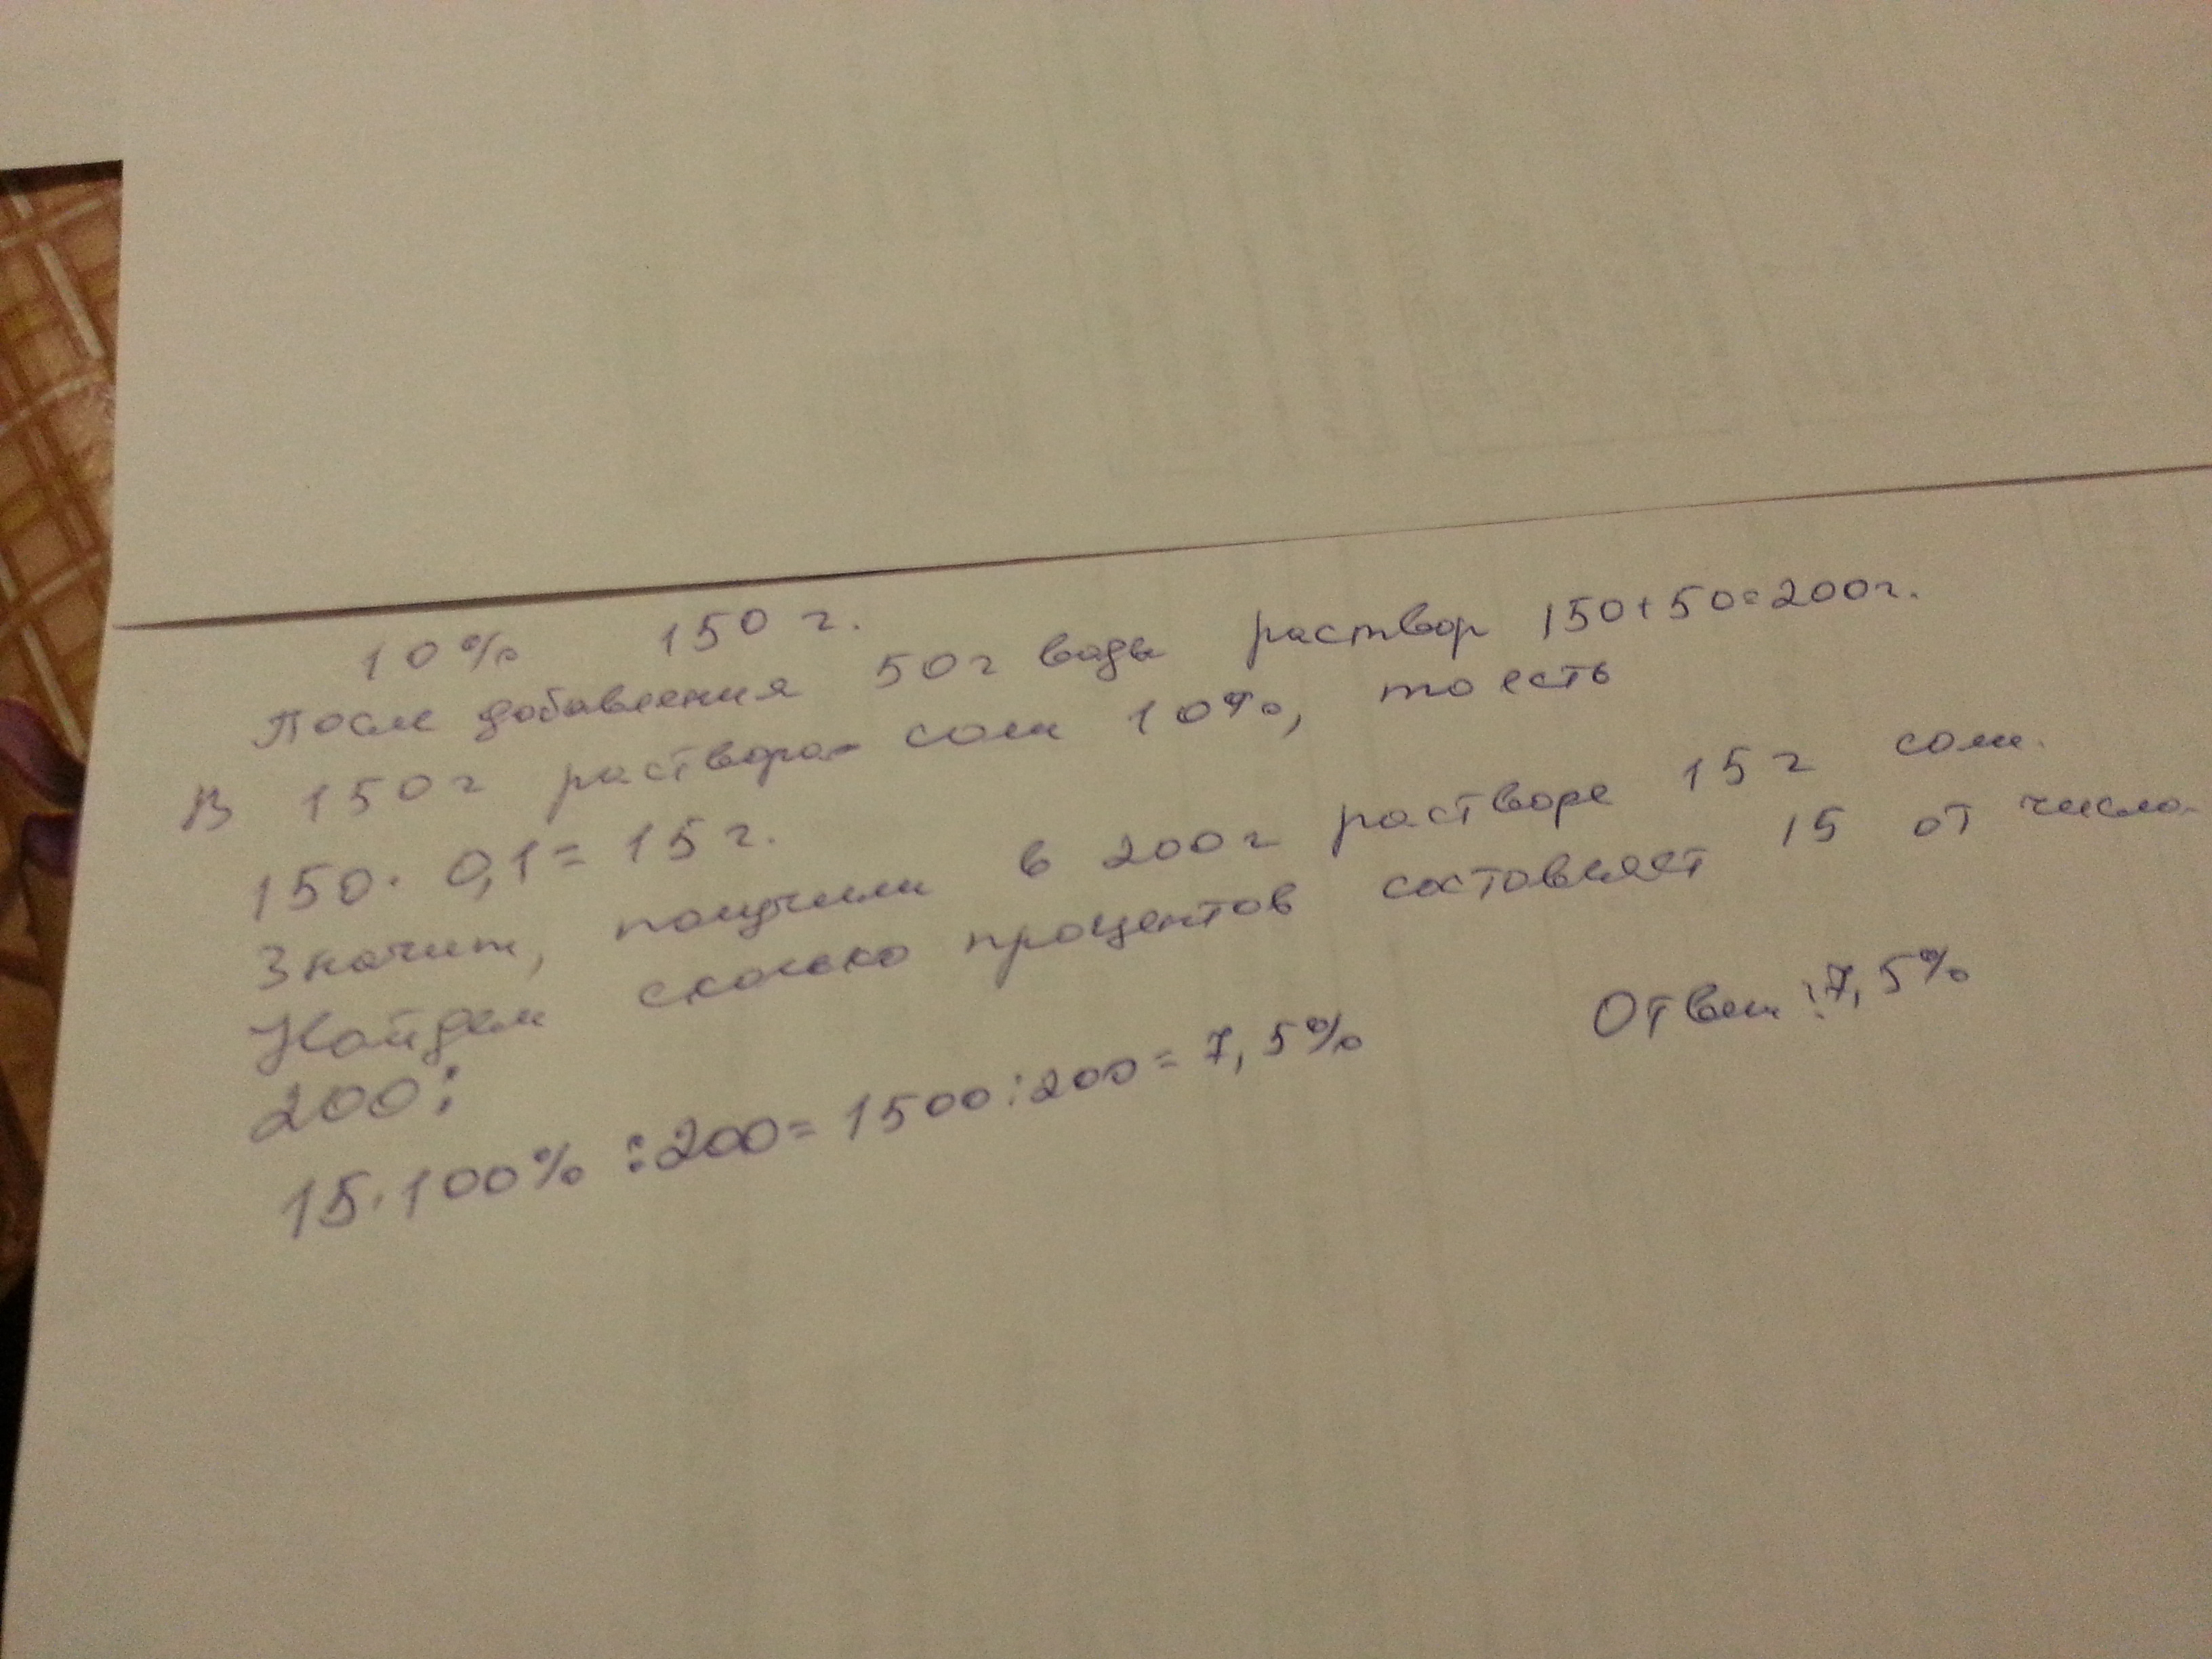 10% 150 г.
После добавления 50г воды раствор 150+50=200г.
В 150г раствора соли 10%, то есть
150 · 0,1 = 15 г.
Значит, получили в 200г растворе 15 г соли.
Найдем сколько процентов составляет 15 от числа
200:
15 · 100% : 200 = 1500 : 200 = 7,5% Ответ: 7,5%